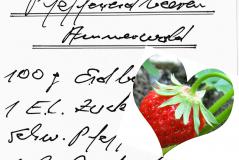 Pfeffererdbeeren
Ammerwald
100 g Erdbe
1 E.L. Zuck
schw. Pfef